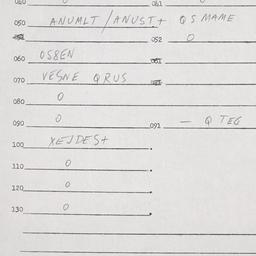 040 0 041 0
050 ANUMLT / ANUST+ QSMAME
052 0
060 OS8EN 061
070 VESNE QRUS
080 0
090 0 091 — Q TEG
100 XEJDES+
110 0
120 0
130 0